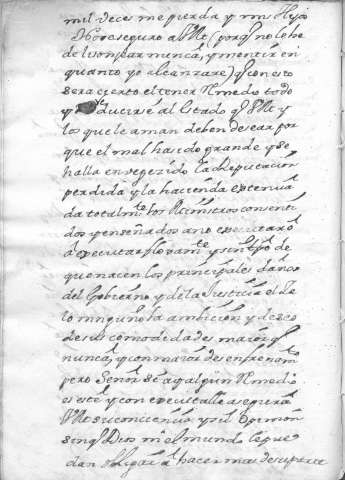 mil veces me pierda y mis Hijos
Yo aseguro a VMt (porq̃ no le he
de lisonjear nunca, y mentir en
quanto yo alcanzare) q̃ con esto
sera cierto el tener Remedio todo
y reducirse al Estado q̃ VMt y
los que le aman deben desear por
que el mal ha sido grande y se
halla envegezido la Reputacion
perdida y la hacienda extenua
da totalmte por Ministros consenti
dos y enseñados a no executar o
a executar floxamte y sin tpo de
que nacen los principales daños
del Gobierno y de la Justicia el ze
lo ninguno la ambicion y deseo
de sus comodidades mayor q̃
nunca y con mayor desenfrenamto
pero Señor si ay algun Remedio
es este y con executalle asegurara
VMt su conciencia y su opinion
sin q̃ Dios ni el mundo le pue
dan obligar a hacer mas de su parte